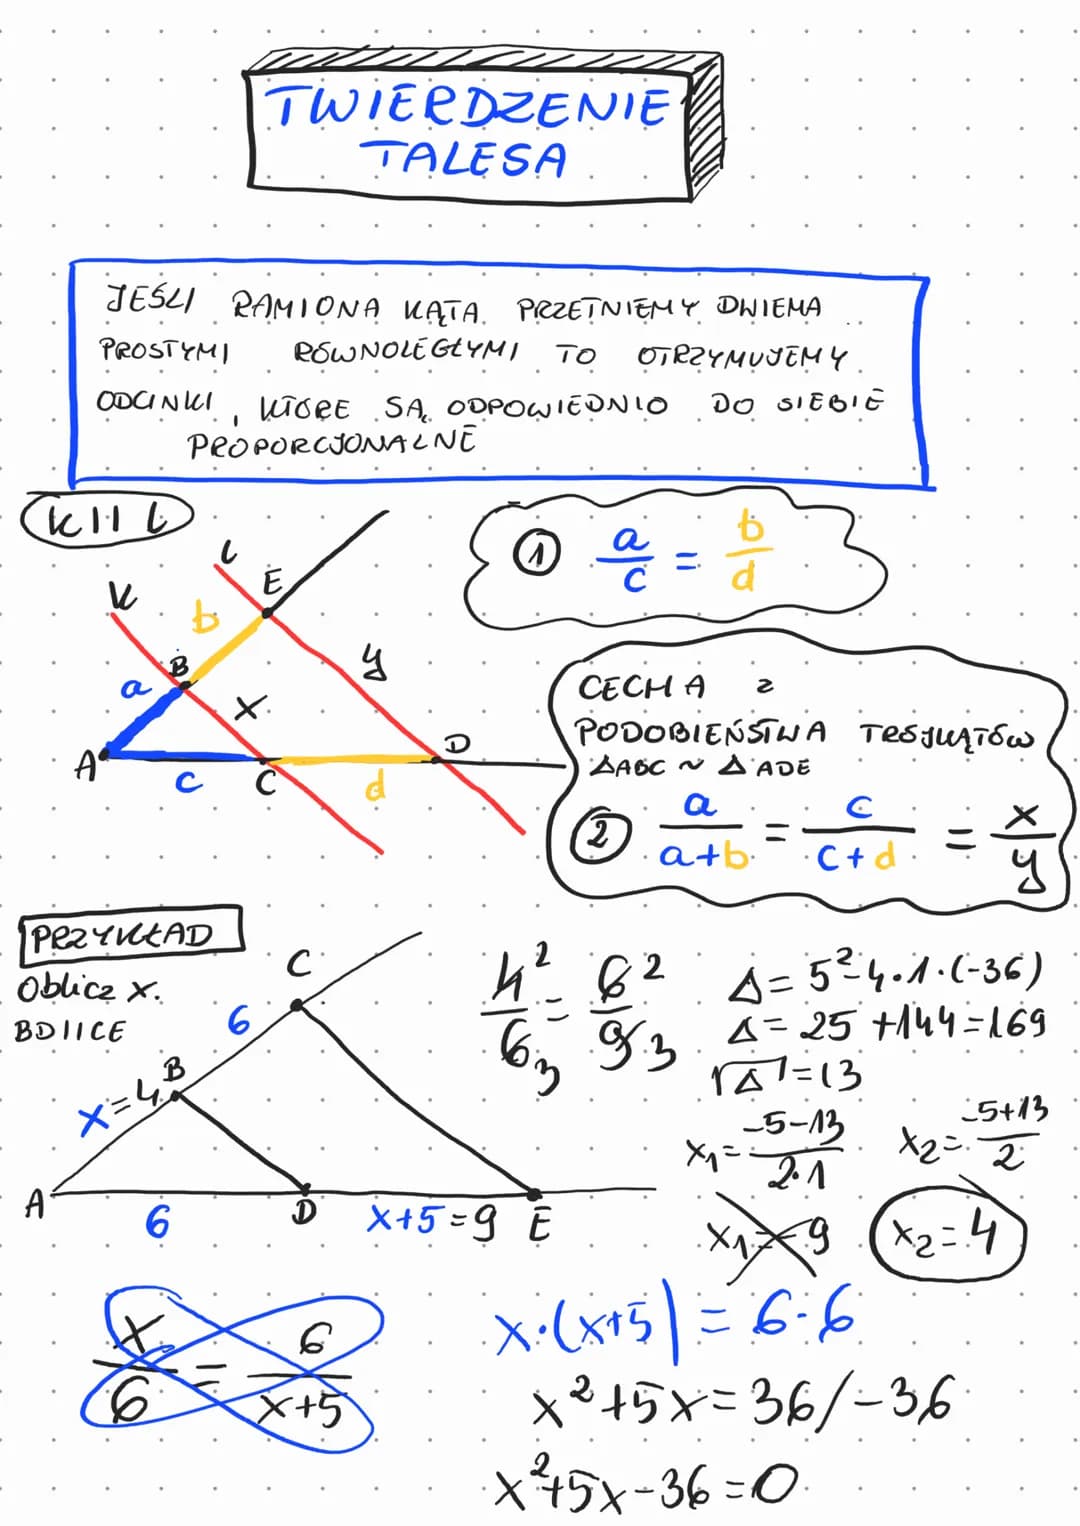 TWIERDZENIE
TALESA
JEŚLI RAMIONA KĄTA PRZETNIEMY DWIEMA
PROSTYMI RÓWNOLEGŁYMI TO OTRZYMUJEMY
ODCINKI, KTÓRE SĄ ODPOWIEDNIO DO SIEBIE
PROPORCJONALNE
k || l
① a/c = b/d
l
k
E
b
B
y
a
x
A
c
C
d
D
CECHA z
PODOBIEŃSTWA TRÓJKĄTÓW
ΔABC ~ ΔADE
② a/a+b = c/c+d = x/y
PRZYKŁAD
Oblicz x.
BD||CE
C
6
B
x=4
A
6
D
x+5=9
E
4²/6₃ = 6²/9₃
Δ= 5²-4·1·(-36)
Δ= 25+144=169
√Δ=13
x₁= -5-13/2·1 x₂= -5+13/2
x₁=-9 x₂=4
x/6 = 6/x+5
x·(x+5)=6·6
x²+5x=36/-36
x²+5x-36=0